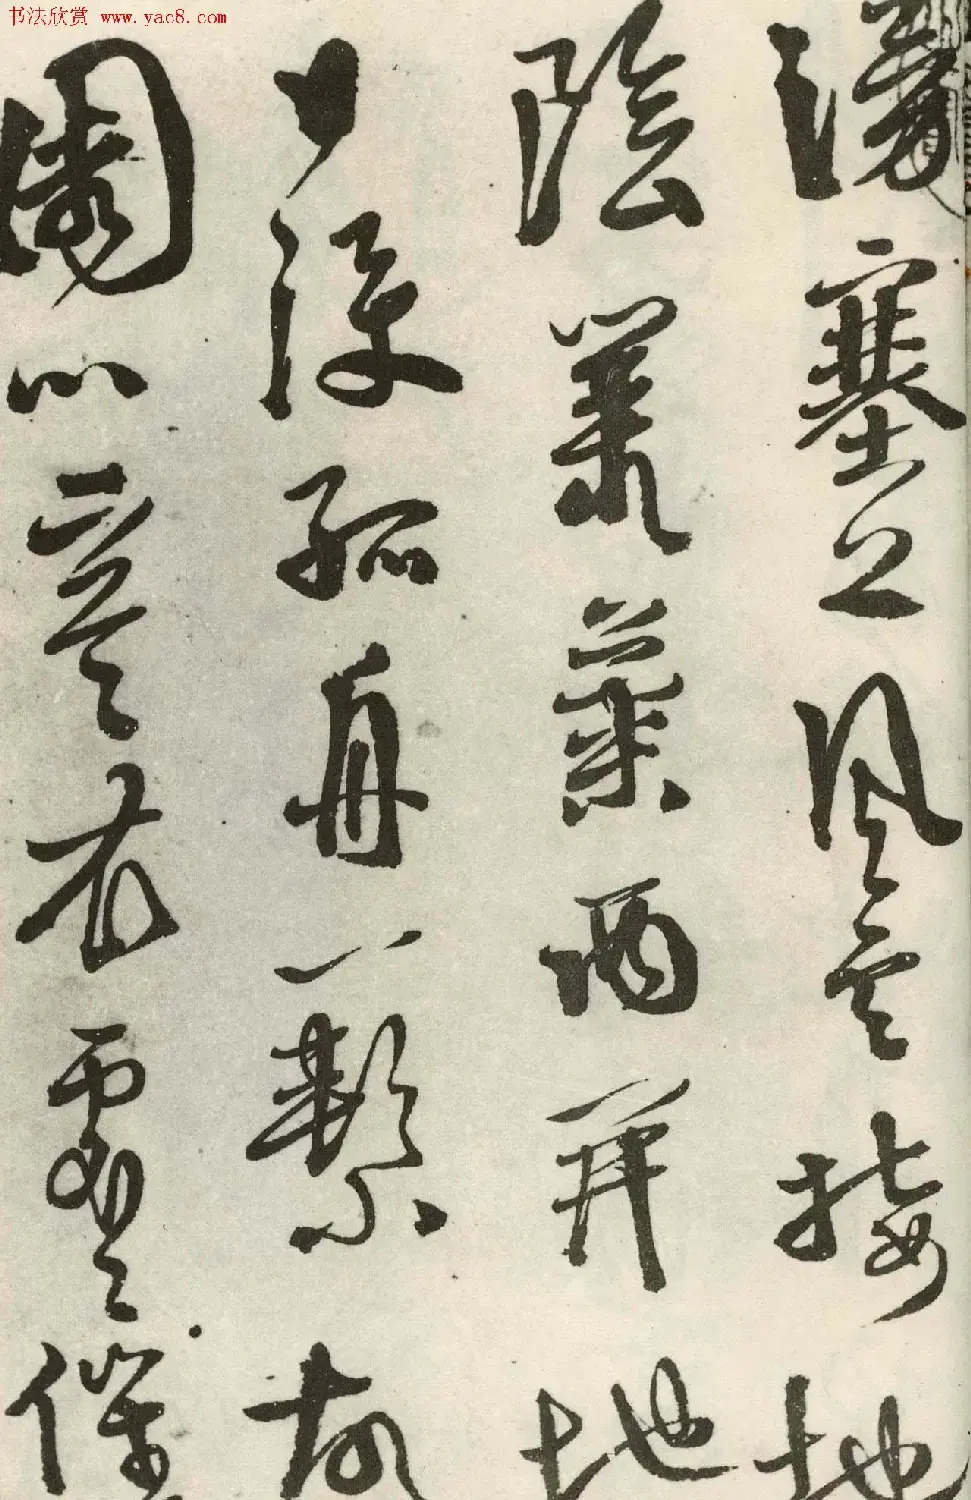 书法欣赏 www.yac8.com
湧塞上風雲接地
陰叢菊兩开他
日淚孤舟一繫故
園心寒衣處々催